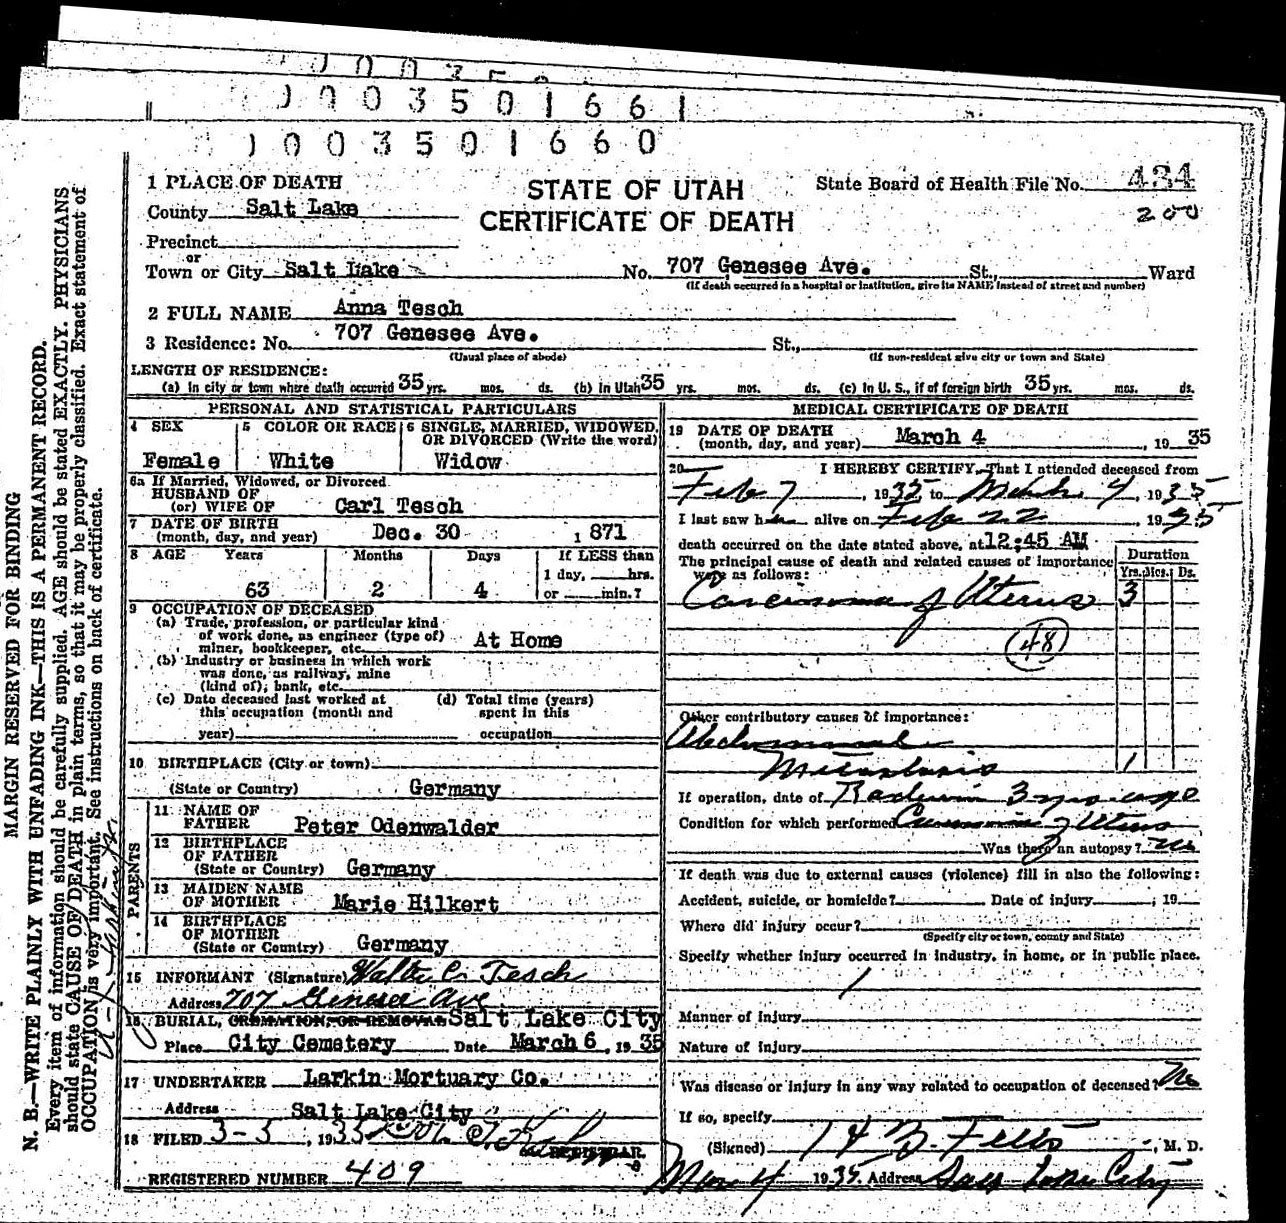 0003501661
0003501660
MARGIN RESERVED FOR BINDING
N. B.—WRITE PLAINLY WITH UNFADING INK—THIS IS A PERMANENT RECORD.
Every item of information should be carefully supplied. AGE should be stated EXACTLY. PHYSICIANS
should state CAUSE OF DEATH in plain terms, so that it may be properly classified. Exact statement of
OCCUPATION is very important. See instructions on back of certificate.
STATE OF UTAH
CERTIFICATE OF DEATH
State Board of Health File No. 434
200
1 PLACE OF DEATH
County Salt Lake
Precinct
or
Town or City Salt Lake No. 707 Genesee Ave. St., Ward
(If death occurred in a hospital or institution, give its NAME instead of street and number)
2 FULL NAME Anna Tesch
3 Residence: No. 707 Genesee Ave. St.,
(Usual place of abode) (If non-resident give city or town and State)
LENGTH OF RESIDENCE:
(a) In city or town where death occurred 35 yrs. mos. ds. (b) In Utah 35 yrs. mos. ds. (c) In U. S., if of foreign birth 35 yrs. mos. ds.
PERSONAL AND STATISTICAL PARTICULARS
4 SEX
Female
5 COLOR OR RACE
White
6 SINGLE, MARRIED, WIDOWED,
OR DIVORCED (Write the word)
Widow
6a If Married, Widowed, or Divorced
HUSBAND OF
(or) WIFE OF Carl Tesch
7 DATE OF BIRTH
(month, day, and year) Dec. 30 1871
8 AGE Years Months Days If LESS than
1 day, hrs.
63 2 4 or min.?
9 OCCUPATION OF DECEASED
(a) Trade, profession, or particular kind
of work done, as engineer (type of)
miner, bookkeeper, etc. At Home
(b) Industry or business in which work
was done, as railway, mine
(kind of), bank, etc.
(c) Date deceased last worked at
this occupation (month and
year)
(d) Total time (years)
spent in this
occupation
10 BIRTHPLACE (City or town)
(State or Country) Germany
PARENTS
11 NAME OF
FATHER Peter Odenwalder
12 BIRTHPLACE
OF FATHER
(State or Country) Germany
13 MAIDEN NAME
OF MOTHER Marie Hilkert
14 BIRTHPLACE
OF MOTHER
(State or Country) Germany
15 INFORMANT (Signature) Walter C. Tesch
Address 707 Genesee Ave
16 BURIAL, CREMATION, OR REMOVAL Salt Lake City
Place City Cemetery Date March 6, 1935
17 UNDERTAKER Larkin Mortuary Co.
Address Salt Lake City
18 FILED 3-5, 1935
REGISTRAR.
REGISTERED NUMBER 409
MEDICAL CERTIFICATE OF DEATH
19 DATE OF DEATH
(month, day, and year) March 4 1935
20 I HEREBY CERTIFY, That I attended deceased from
Feb 7, 1935 to March 4, 1935
I last saw her alive on Feb 22, 1935
death occurred on the date stated above, at 12:45 AM
The principal cause of death and related causes of importance
were as follows:
Duration
Yrs. Mos. Ds.
Carcinoma of Uterus 3
48
Other contributory causes of importance:
Abdominal
Metastasis 1
If operation, date of Radium 3 yrs ago
Condition for which performed Carcinoma of Uterus
Was there an autopsy? no
If death was due to external causes (violence) fill in also the following:
Accident, suicide, or homicide? Date of injury , 19
Where did injury occur?
(Specify city or town, county and State)
Specify whether injury occurred in industry, in home, or in public place.
Manner of injury
Nature of injury
Was disease or injury in any way related to occupation of deceased? No
If so, specify
(Signed) Felts, M. D.
Mar 4 1935. Address Salt Lake City